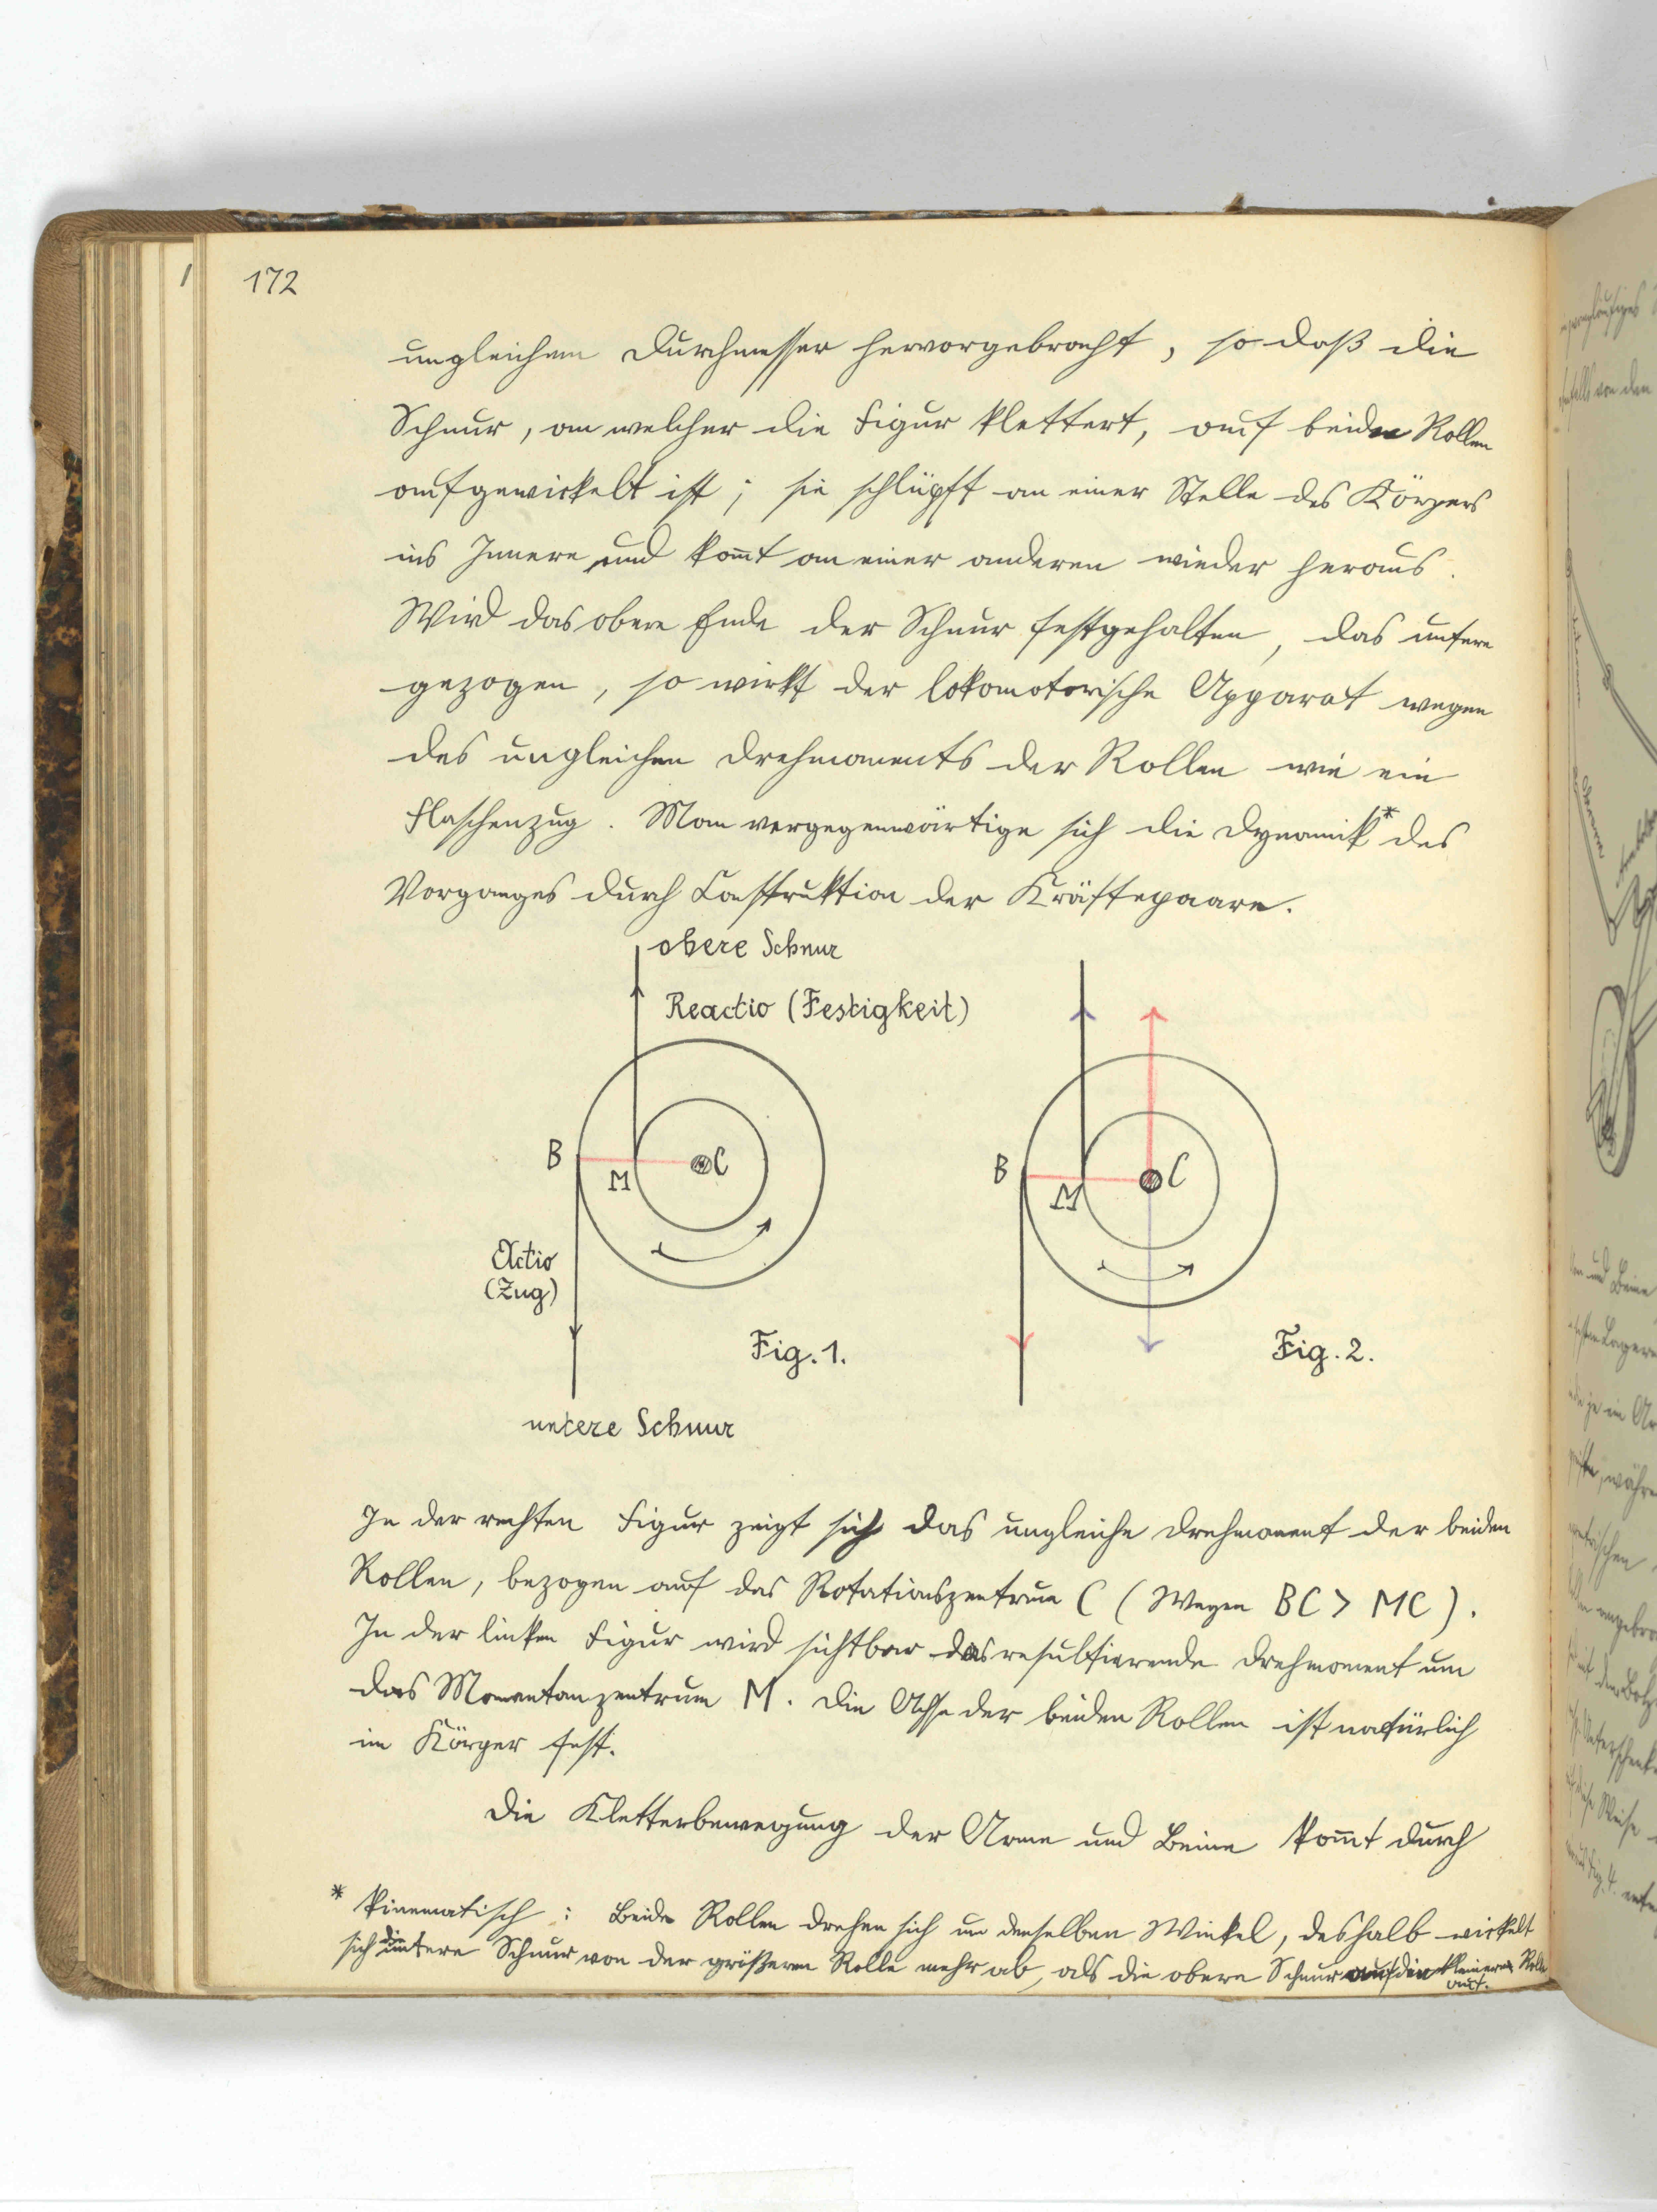 172
ungleichem Durchmesser hervorgebracht, so daß die
Schnur, an welcher die Figur klettert, auf beiden Rollen
aufgewickelt ist; sie schlüpft an einer Stelle des Körpers
ins Innere und kom̄t an einer anderen wieder heraus.
Wird das obere Ende der Schnur festgehalten, das untere
gezogen, so wirkt der lokomotorische Apparat wegen
des ungleichen Drehmoments der Rollen wie ein
Flaschenzug. Man vergegenwärtige sich die Dynamik* des
Vorganges durch Construktion der Kräftepaare.
obere Schnur
Reactio (Festigkeit)
B
M
C
B
M
C
Actio
(Zug)
Fig. 1.
Fig. 2.
untere Schnur
In der rechten Figur zeigt sich das ungleiche Drehmoment der beiden
Rollen, bezogen auf das Rotationszentrum C (Wegen BC > MC).
In der linken Figur wird sichtbar das resultierende Drehmoment um
das Momentanzentrum M. Die Achse der beiden Rollen ist natürlich
im Körper fest.
Die Kletterbewegung der Arme und Beine kom̄t durch
* Kinematisch: Beide Rollen drehen sich um denselben Winkel, deshalb wickelt
sich die untere Schnur von der größeren Rolle mehr ab, als die obere Schnur auf die kleinere Rolle
auf.